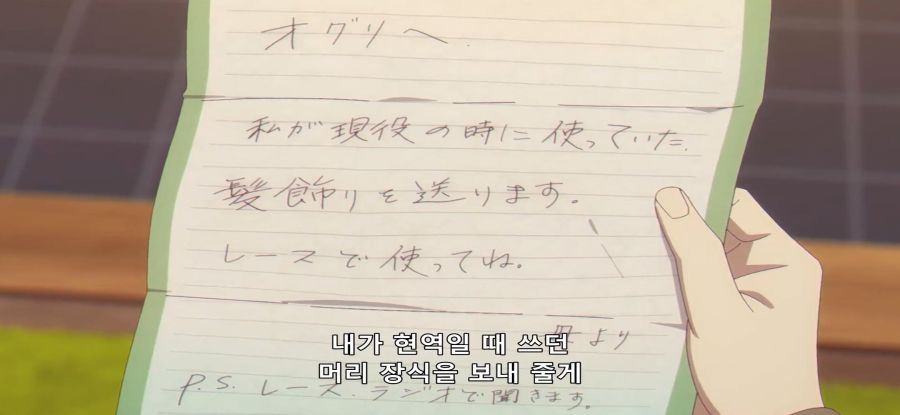 オグリへ.
私が現役の時に使っていた
髪飾りを送ります。
レースで使ってね。
母より
내가 현역일 때 쓰던
머리 장식을 보내 줄게
P.S. レース、ラジオで聞きます。